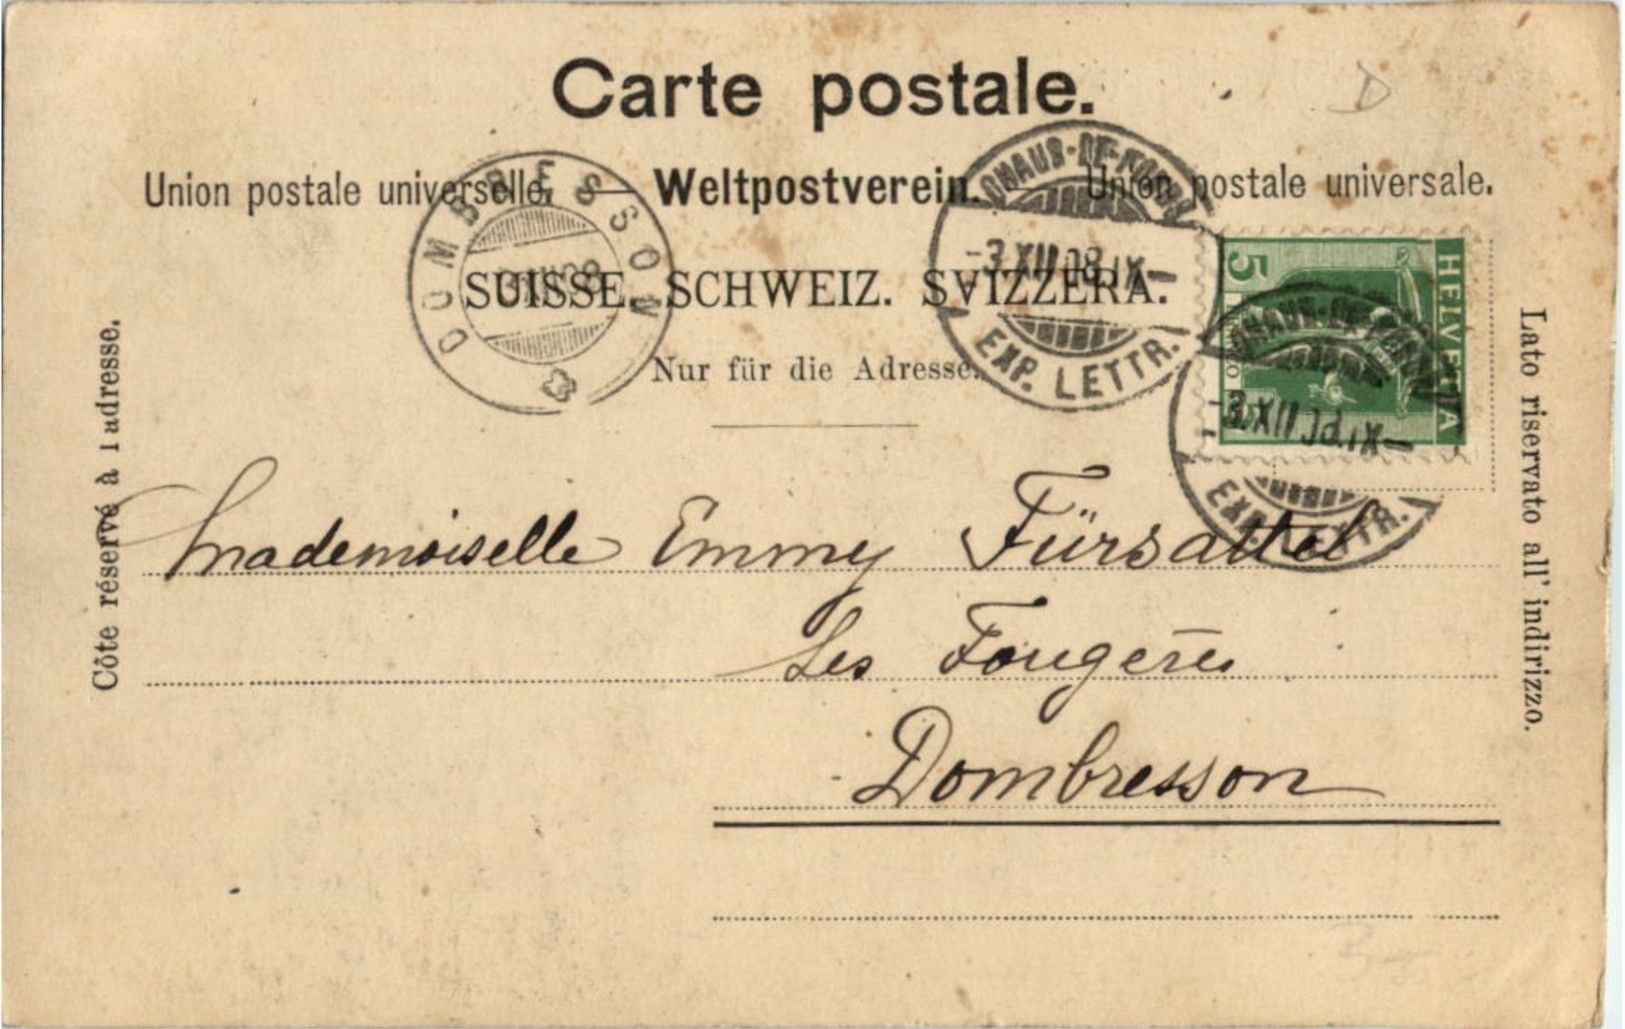 Carte postale.
D
Union postale universelle. — Weltpostverein. — Union postale universale.
SUISSE. SCHWEIZ. SVIZZERA.
Nur für die Adresse.
DOMBRESSON
CHAUX-DE-FONDS
-3.XII.08.IX-
EXP. LETTR.
HELVETIA
5
CHAUX-DE-FONDS
-3.XII. IX-
EXP. LETTR.
Côte réservé à l'adresse.
Lato riservato all' indirizzo.
Mademoiselle Emmy Fürsattel
Les Fougères
Dombresson